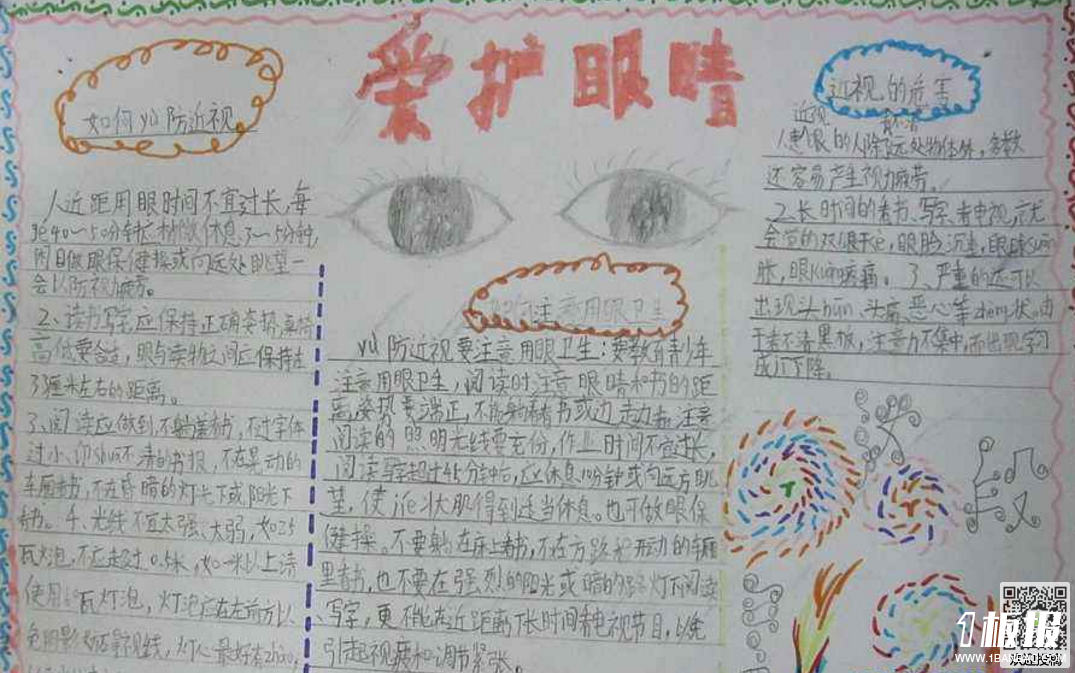 爱护眼睛
如何yù防近视
人近距用眼时间不宜过长,每
40~50分钟 休息3~5分钟,
做眼保健操或向远处眺望一
会以防视力疲劳。
2、读书写字应保持正确姿势,桌椅
高低要合 ,眼与读物之间应保持在
33厘米左右的距离。
3、阅读应做到不躺着看书,不过字体
过小、印shuā不清的书报,不在晃动的
车厢看书,不在昏暗的灯光下或阳光下
看书。4、光线不宜太强、太弱,如25
瓦灯泡,不应超过0.5米,如一米以上请
使用60瓦灯泡,灯泡应在左前方以
免阴影 视线,灯 最好有zhào,
注意用眼卫生
yù防近视要注意用眼卫生:要教育青少年
注意用眼卫生,阅读时注意眼睛和书的距
离,姿势要端正,不能躺着看书或边走边看,注意
阅读的照明光线要充份,作业时间不宜过长,
阅读写字超过45分钟后,应休息10分钟或向远方眺
望,使jié状肌得到适当休息。也可做眼保
健操。不要躺在床上看书,不在方路和开动的车厢
里看书,也不要在强烈的阳光或暗的路灯下阅读
写字,更不能在近距离下长时间看电视节目,以免
引起视疲和调节紧张。
近视的危害
近视 看不清
1患眼的人除 远处物体外,多数
还容易产生视力疲劳。
2、长时间的看书、写字、看电视,就
会觉的双眼干sè,眼脸沉重,眼球
胀,眼kuàng疼痛。3、严重的还可以
出现头hūn、头痛、恶心等zhèng状,由
于看不清黑板,注意力不集中,而出现学习
成 下降。
1板报
WWW.1BANBAO.COM